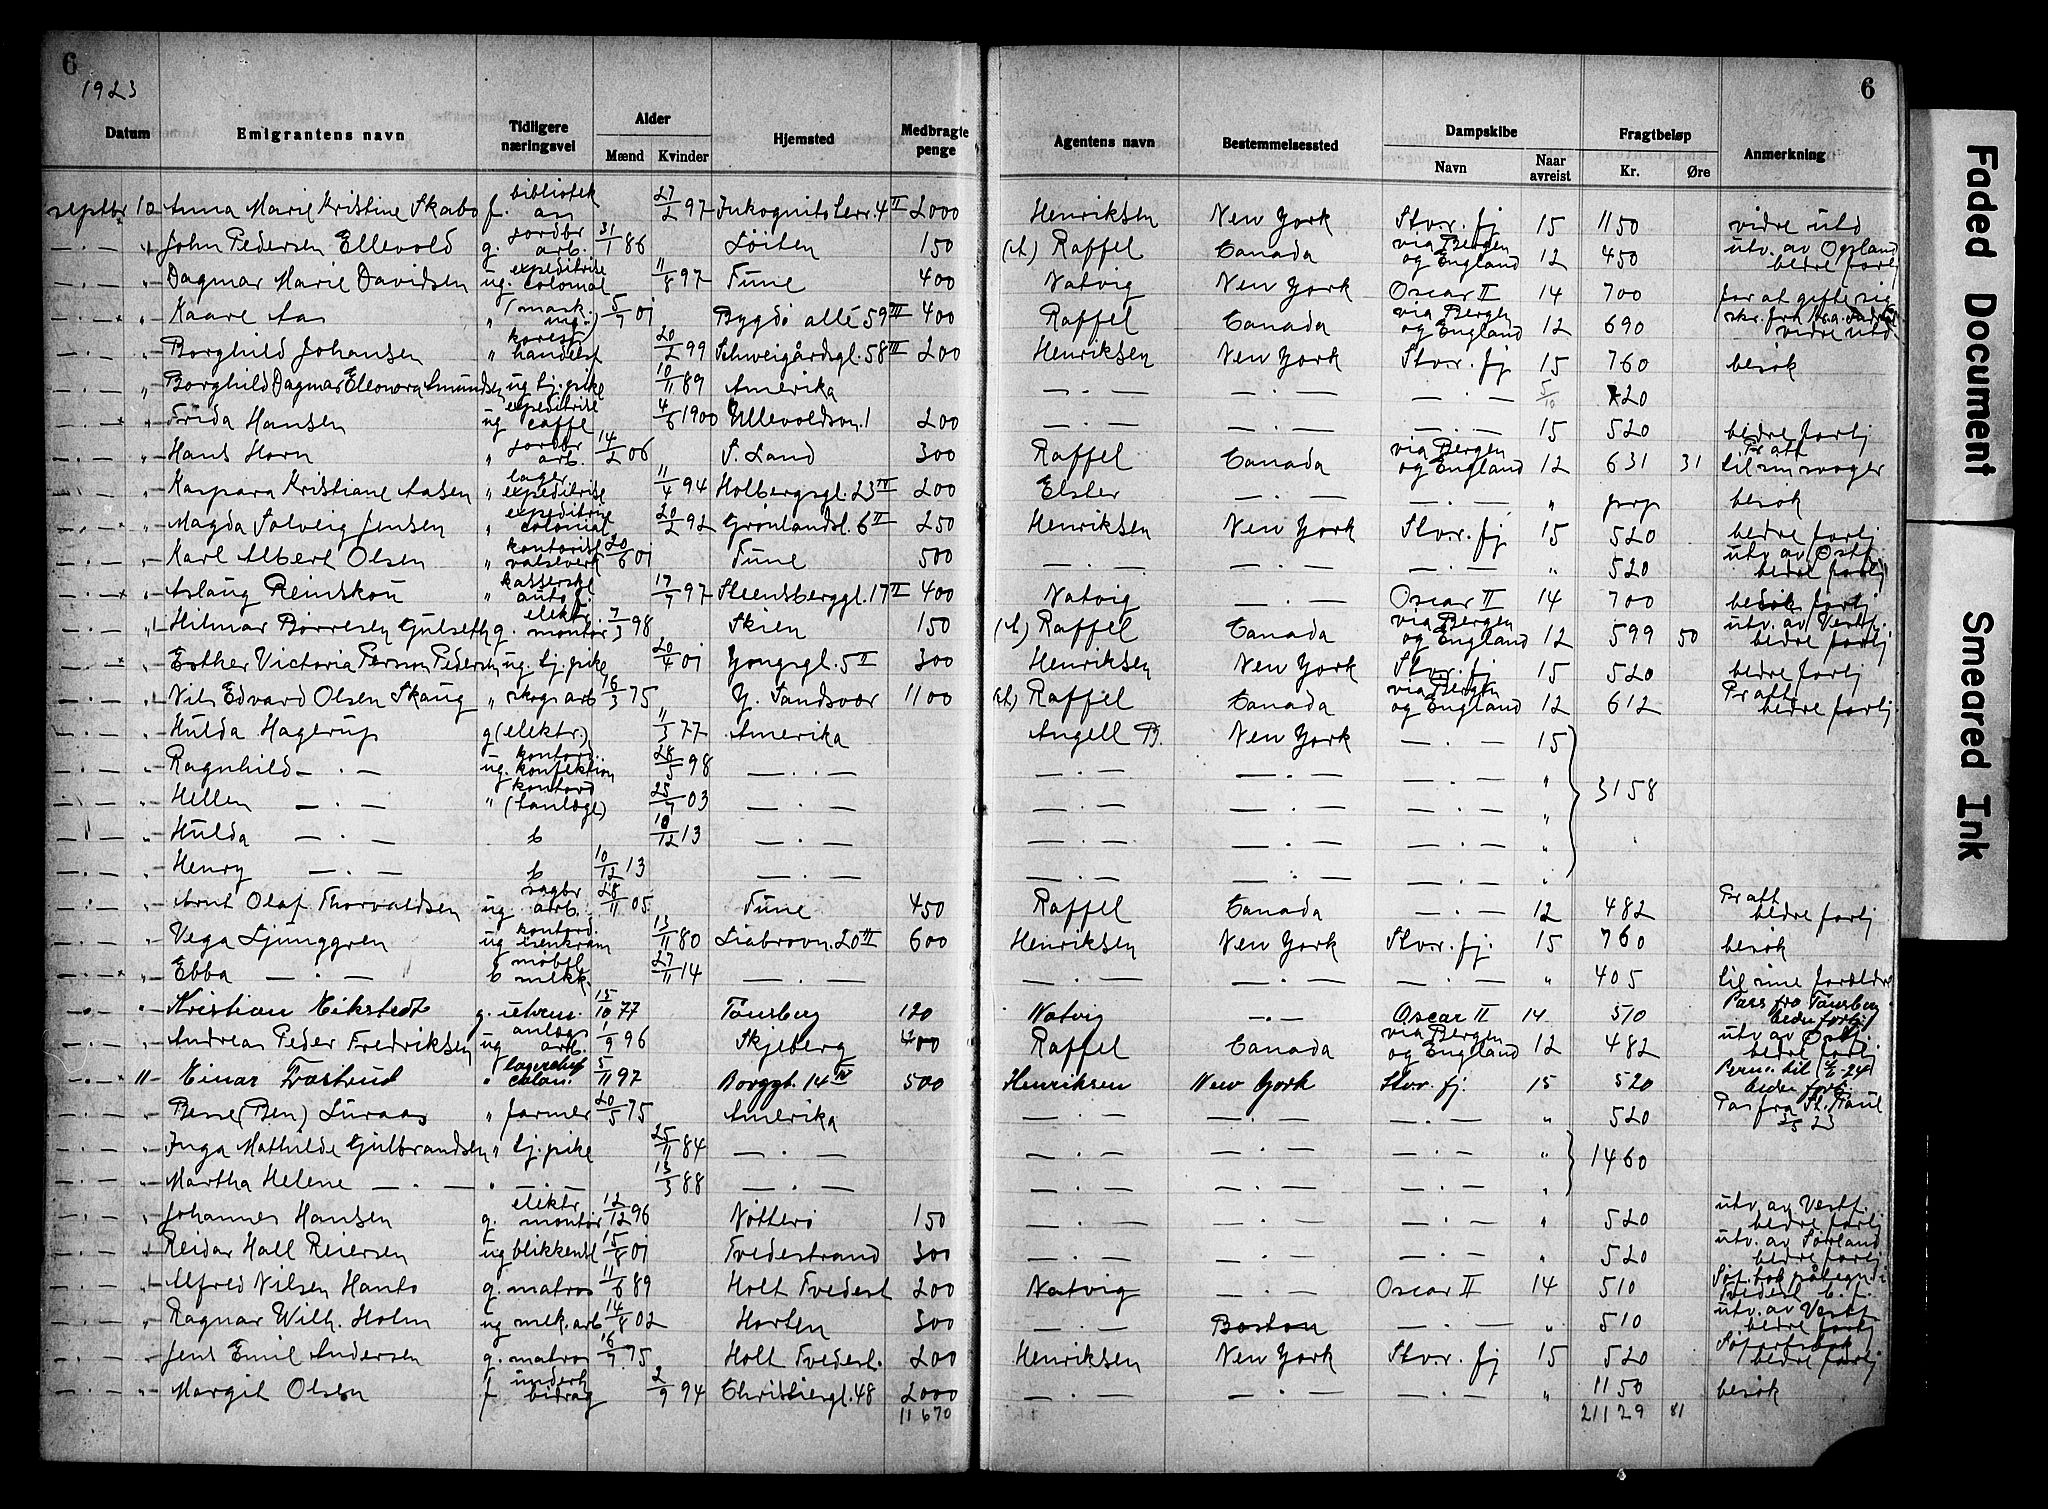 6
1923
Datum Emigrantens navn Tidligere næringsvei Alder Mænd Kvinder Hjemsted Medbragte penge
6
Agentens navn Bestemmelsessted Dampskibe Navn Naar avreist Fragtbeløp Kr. Øre Anmerkning
septbr 10 Anna Marie Kristine Skabo f. bibliotek 27/2 97 Inkognito terr. 4 II 2000 Henriksen New York Stvr. fj 15 1150 vidre utd
— . — " John Pedersen Ellevold g. jordbr arb. 31/1 86 Löiten 150 (A) Raffel Canada via Bergen og England 12 450 utv. av Opland bedre forhj
— . — " Dagmar Marie Davidsen ug. expeditrise colonial 11/8 97 Tune 400 Natvig New York Oscar II 14 700 for at gifte sig
— . — " Kaare Aas " (mask. ing.) 5/7 01 Bygdö allé 59 III 400 Raffel Canada via Bergen og England 12 690 vidre utd.
— . — " Borghild Johansen " handelsf 20/2 99 Schweigårdsgt. 58 III 200 Henriksen New York Stvr. fj 15 760 besök
— . — " Borghild Dagmar Eleonora Amundsen ug tj. pike 10/11 89 Amerika — . — — . — — . — 5/10 720
— . — " Frida Hansen ug expeditrise caffe 4/6 1900 Ullevoldsv. 1 200 — . — — . — — . — 15 520 bedre forhj
— . — " Hans Horn " jordbr arb. 14/2 06 S. Land 300 Raffel Canada via Bergen og England 12 631 31 Pr att til sin svoger
— . — " Kaspara Kristiane Aasen " lager expeditrise 11/4 94 Holbergsgt. 23 IV 200 Elster — . — — . — " prp besök
— . — " Magda Solveig Jensen " expeditrise colonial 20/2 92 Grönlandsl. 6 II 250 Henriksen New York Stvr. fj 15 520 bedre forhj
— . — " Karl Albert Olsen " kontorist valseverk 20/6 01 Tune 500 — . — — . — — . — " 520 utv av Östf. bedre forhj
— . — " Aslaug Reinskou " kasserske auto f. 17/7 97 Steensberggt. 17 II 400 Natvig — . — Oscar II 14 700 bedre forhj
— . — " Hilmar Börresen Gulseth g. elektr. montör 7/3 98 Skien 150 (A) Raffel Canada via Bergen og England 12 599 50 utv. av Vestf. bedre forhj
— . — " Esther Victoria Person Pedersen ug. tj. pike 20/4 01 Yongsgt. 5 II 300 Henriksen New York Stvr. fj 15 520 bedre forhj
— . — " Nils Edvard Olsen Skaug " skogs arb 16/3 75 Y. Sandsvær 1100 (A) Raffel Canada via Bergen og England 12 612 Pr att bedre forhj
— . — " Hulda Hagerup g (elektr.) 11/3 77 Amerika Angell B. New York — . — 15
— . — " Ragnhild — . — ug. kontord. konfektion 28/5 98 — . — — . — — . — — . — "
— . — " Hellen — . — " kontord (tanlæge) 25/7 03 — . — — . — — . — — . — " 3158
— . — " Hulda — . — b 10/12 13 — . — — . — — . — — . — "
— . — " Henry — . — b 10/12 13 — . — — . — — . — — . — "
— . — " Arnt Olaf Thorvaldsen ug. sagbr arb. 28/11 05 Tune 450 Raffel Canada — . — 12 482 Pr att bedre forhj
— . — " Vega Ljunggren ug kontord. isenkram 13/11 80 Liabrovn. 20 III 600 Henriksen New York Stvr. fj. 15 760 besök
— . — " Ebba — . — b mekk. 27/11 14 — . — — . — — . — — . — " 405 til sine foreldre
— . — " Kristian Eikstedt g. 15/10 77 Tönsberg 120 Natvig — . — Oscar II 14 510 Pass fra Tönsberg bedre forhj
— . — " Andreas Peder Fredriksen ug anlægs arb. 1/9 96 Skjeberg 400 Raffel Canada via Bergen og England 12 482 utv. av Östf. bedre forhj
— . — 11 Einar Trostrud " 5/11 97 Borggt. 14 IV 500 Henriksen New York Stvr. fj. 15 520 bedre forhj.
— . — " Besse (Ben) Luraas " farmer 20/5 75 Amerika — . — — . — — . — " 520 Pas fra St. Paul 2/5 23
— . — " Inga Mathilde Gulbrandsen " tj. pike 25/11 84 — . — — . — — . — — . — " 1460
— . — " Martha Helene — . — " — . — 13/3 88 — . — — . — — . — — . — "
— . — " Johannes Hansen g. elektr. montör 12/12 96 Nötterö 150 — . — — . — — . — " 520 utv. av Vestf. bedre forhj
— . — " Reidar Hall Reiersen ug blikkensl 15/8 01 Tvedestrand 300 — . — — . — — . — " 520 utv. av Sörland bedre forhj
— . — " Alfred Nilsen Hanto g. matros 11/6 89 Holt Tvedest 200 Natvig — . — Oscar II 14 510
— . — " Ragnar Wilh. Holm ug mek. arb 14/8 02 Horten 300 — . — Boston — . — " 510 utv. av Vestf. bedre forhj
— . — " Jens Emil Andersen g. matros 16/7 75 Holt Tvedest. 200 Henriksen New York Stvr. fj 15 520 Söfartsbok bedre forhj
— . — " Margit Olsen f underh bidrag 2/9 94 Christiesgt. 48 2000 — . — — . — — . — " 1150 besök
11670 21129 81
Faded Document
Smeared Ink